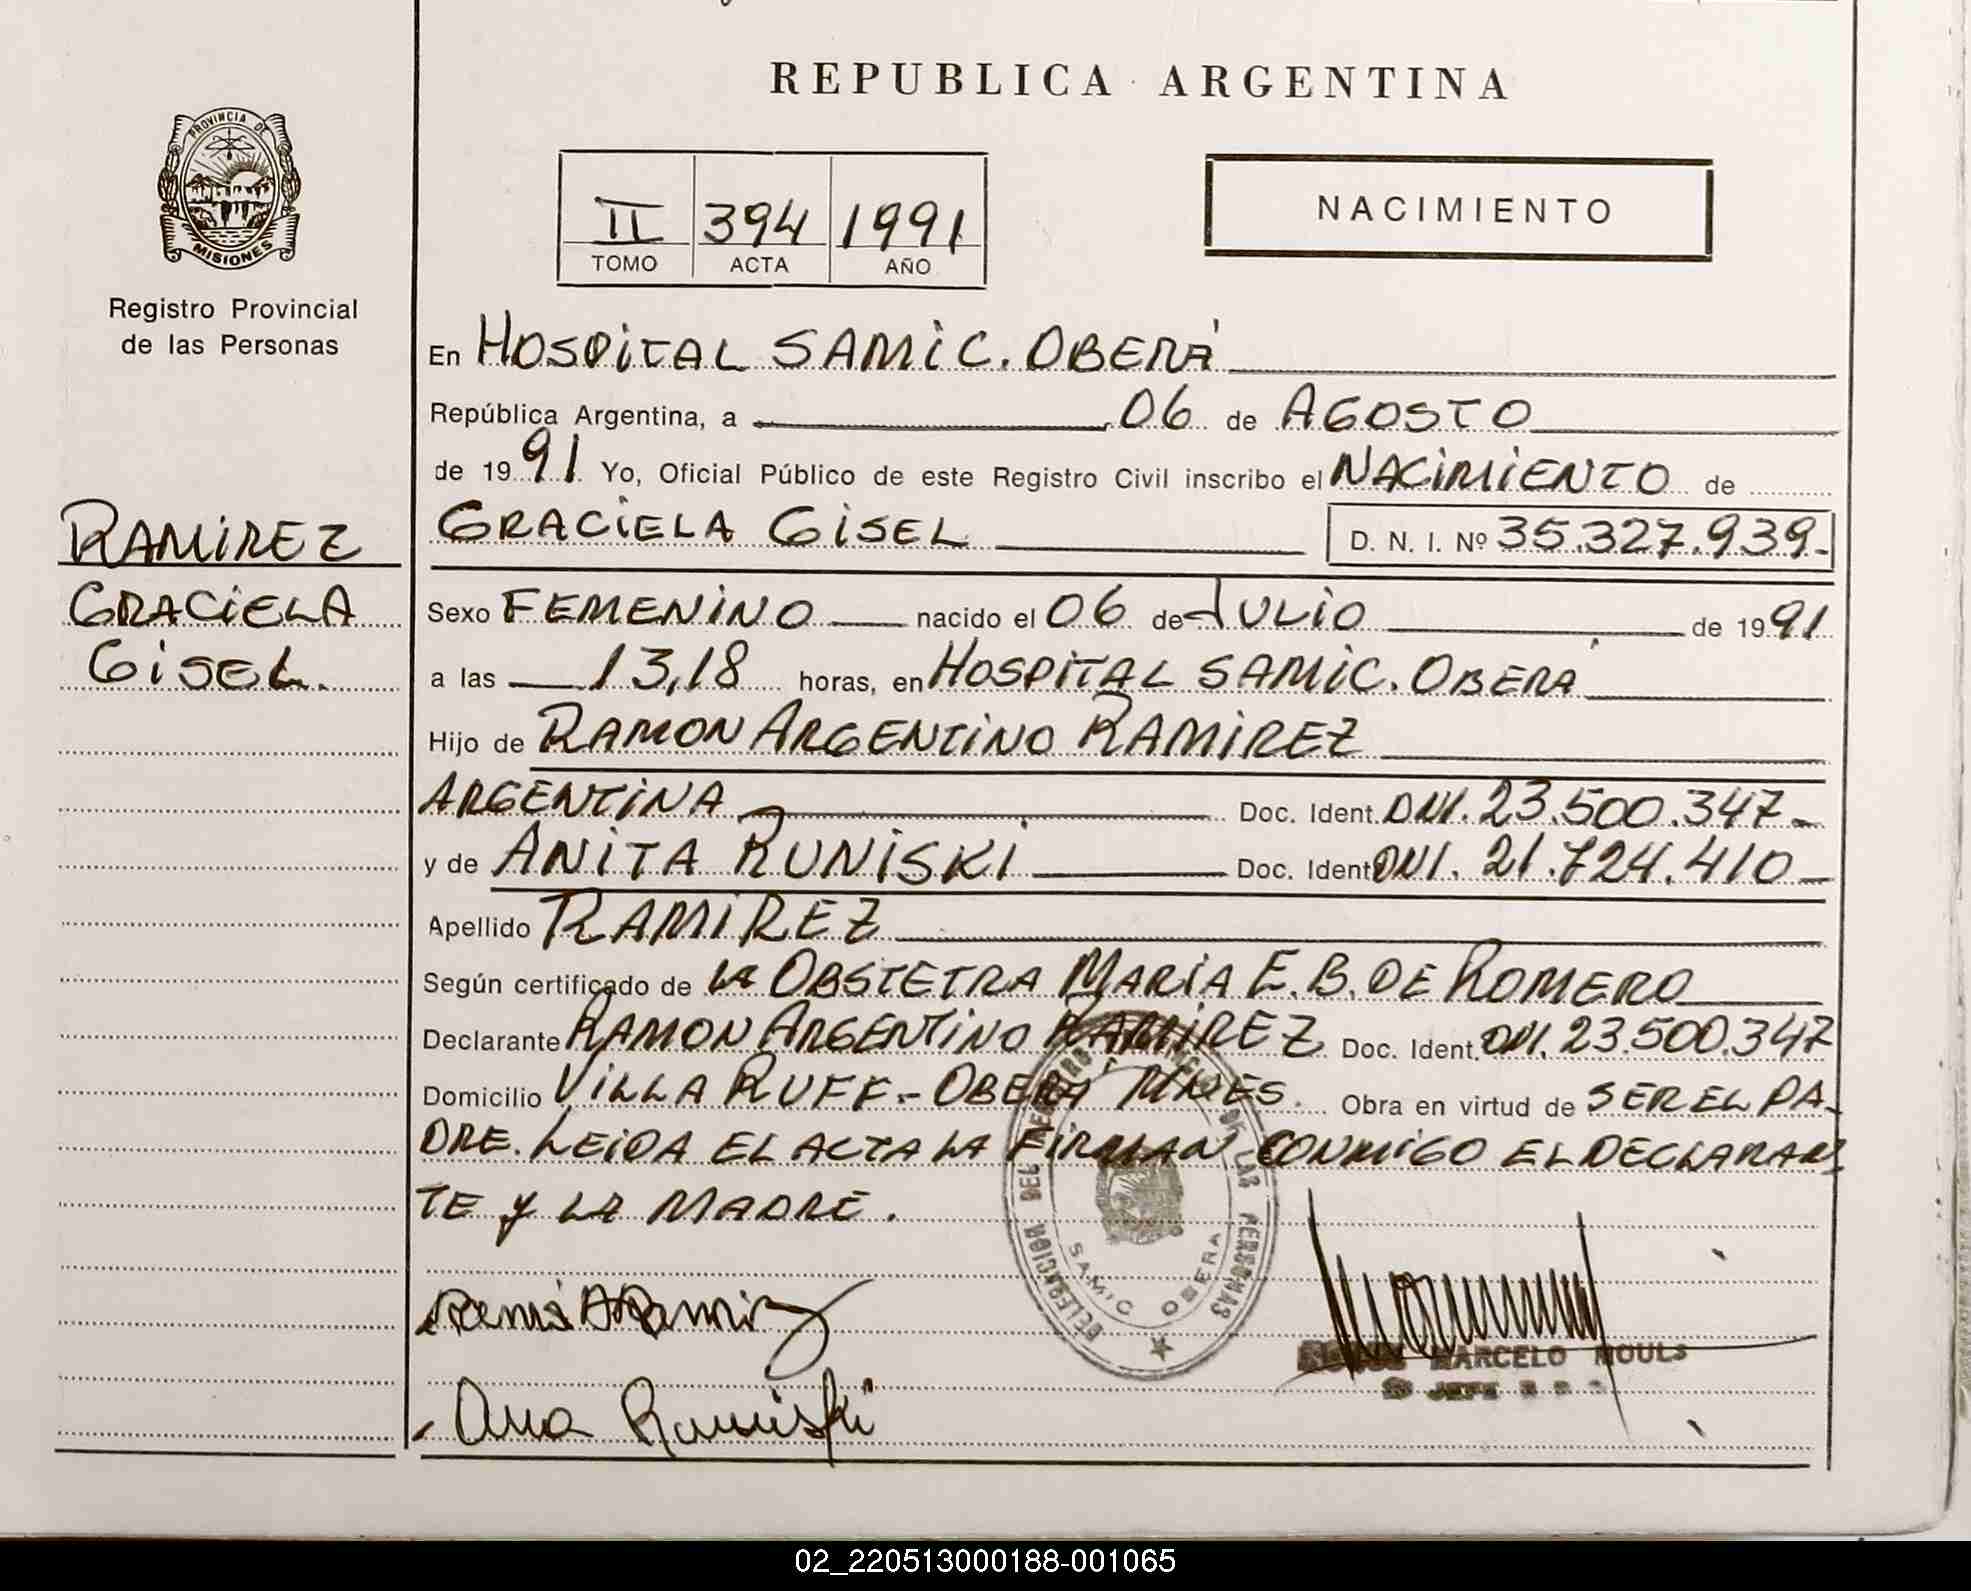 REPUBLICA ARGENTINA
PROVINCIA DE
MISIONES
Registro Provincial
de las Personas
II 394 1991
TOMO ACTA AÑO
NACIMIENTO
En HOSPITAL SAMIC. OBERÁ
República Argentina, a 06 de AGOSTO
de 1991 Yo, Oficial Público de este Registro Civil inscribo el NACIMIENTO de
RAMIREZ
GRACIELA
GISEL.
GRACIELA GISEL D. N. I. Nº 35.327.939-
Sexo FEMENINO nacido el 06 de JULIO de 1991
a las 13,18 horas, en HOSPITAL SAMIC. OBERÁ
Hijo de RAMON ARGENTINO RAMIREZ
ARGENTINA Doc. Ident. DNI. 23.500.347-
y de ANITA RUNISKI Doc. Ident DNI. 21.724.410-
Apellido RAMIREZ
Según certificado de LA OBSTETRA MARIA E. B. DE ROMERO
Declarante RAMON ARGENTINO RAMIREZ Doc. Ident. DNI. 23.500.347
Domicilio VILLA RUFF.- OBERÁ MNES. Obra en virtud de SER EL PA-
DRE. LEIDA EL ACTA LA FIRMAN CONMIGO EL DECLARAN-
TE Y LA MADRE.
DELEGACION DEL DE LAS PERSONAS
SAMIC OBERA
MARCELO MOULS
JEFE
Ana Runiski
02_220513000188-001065